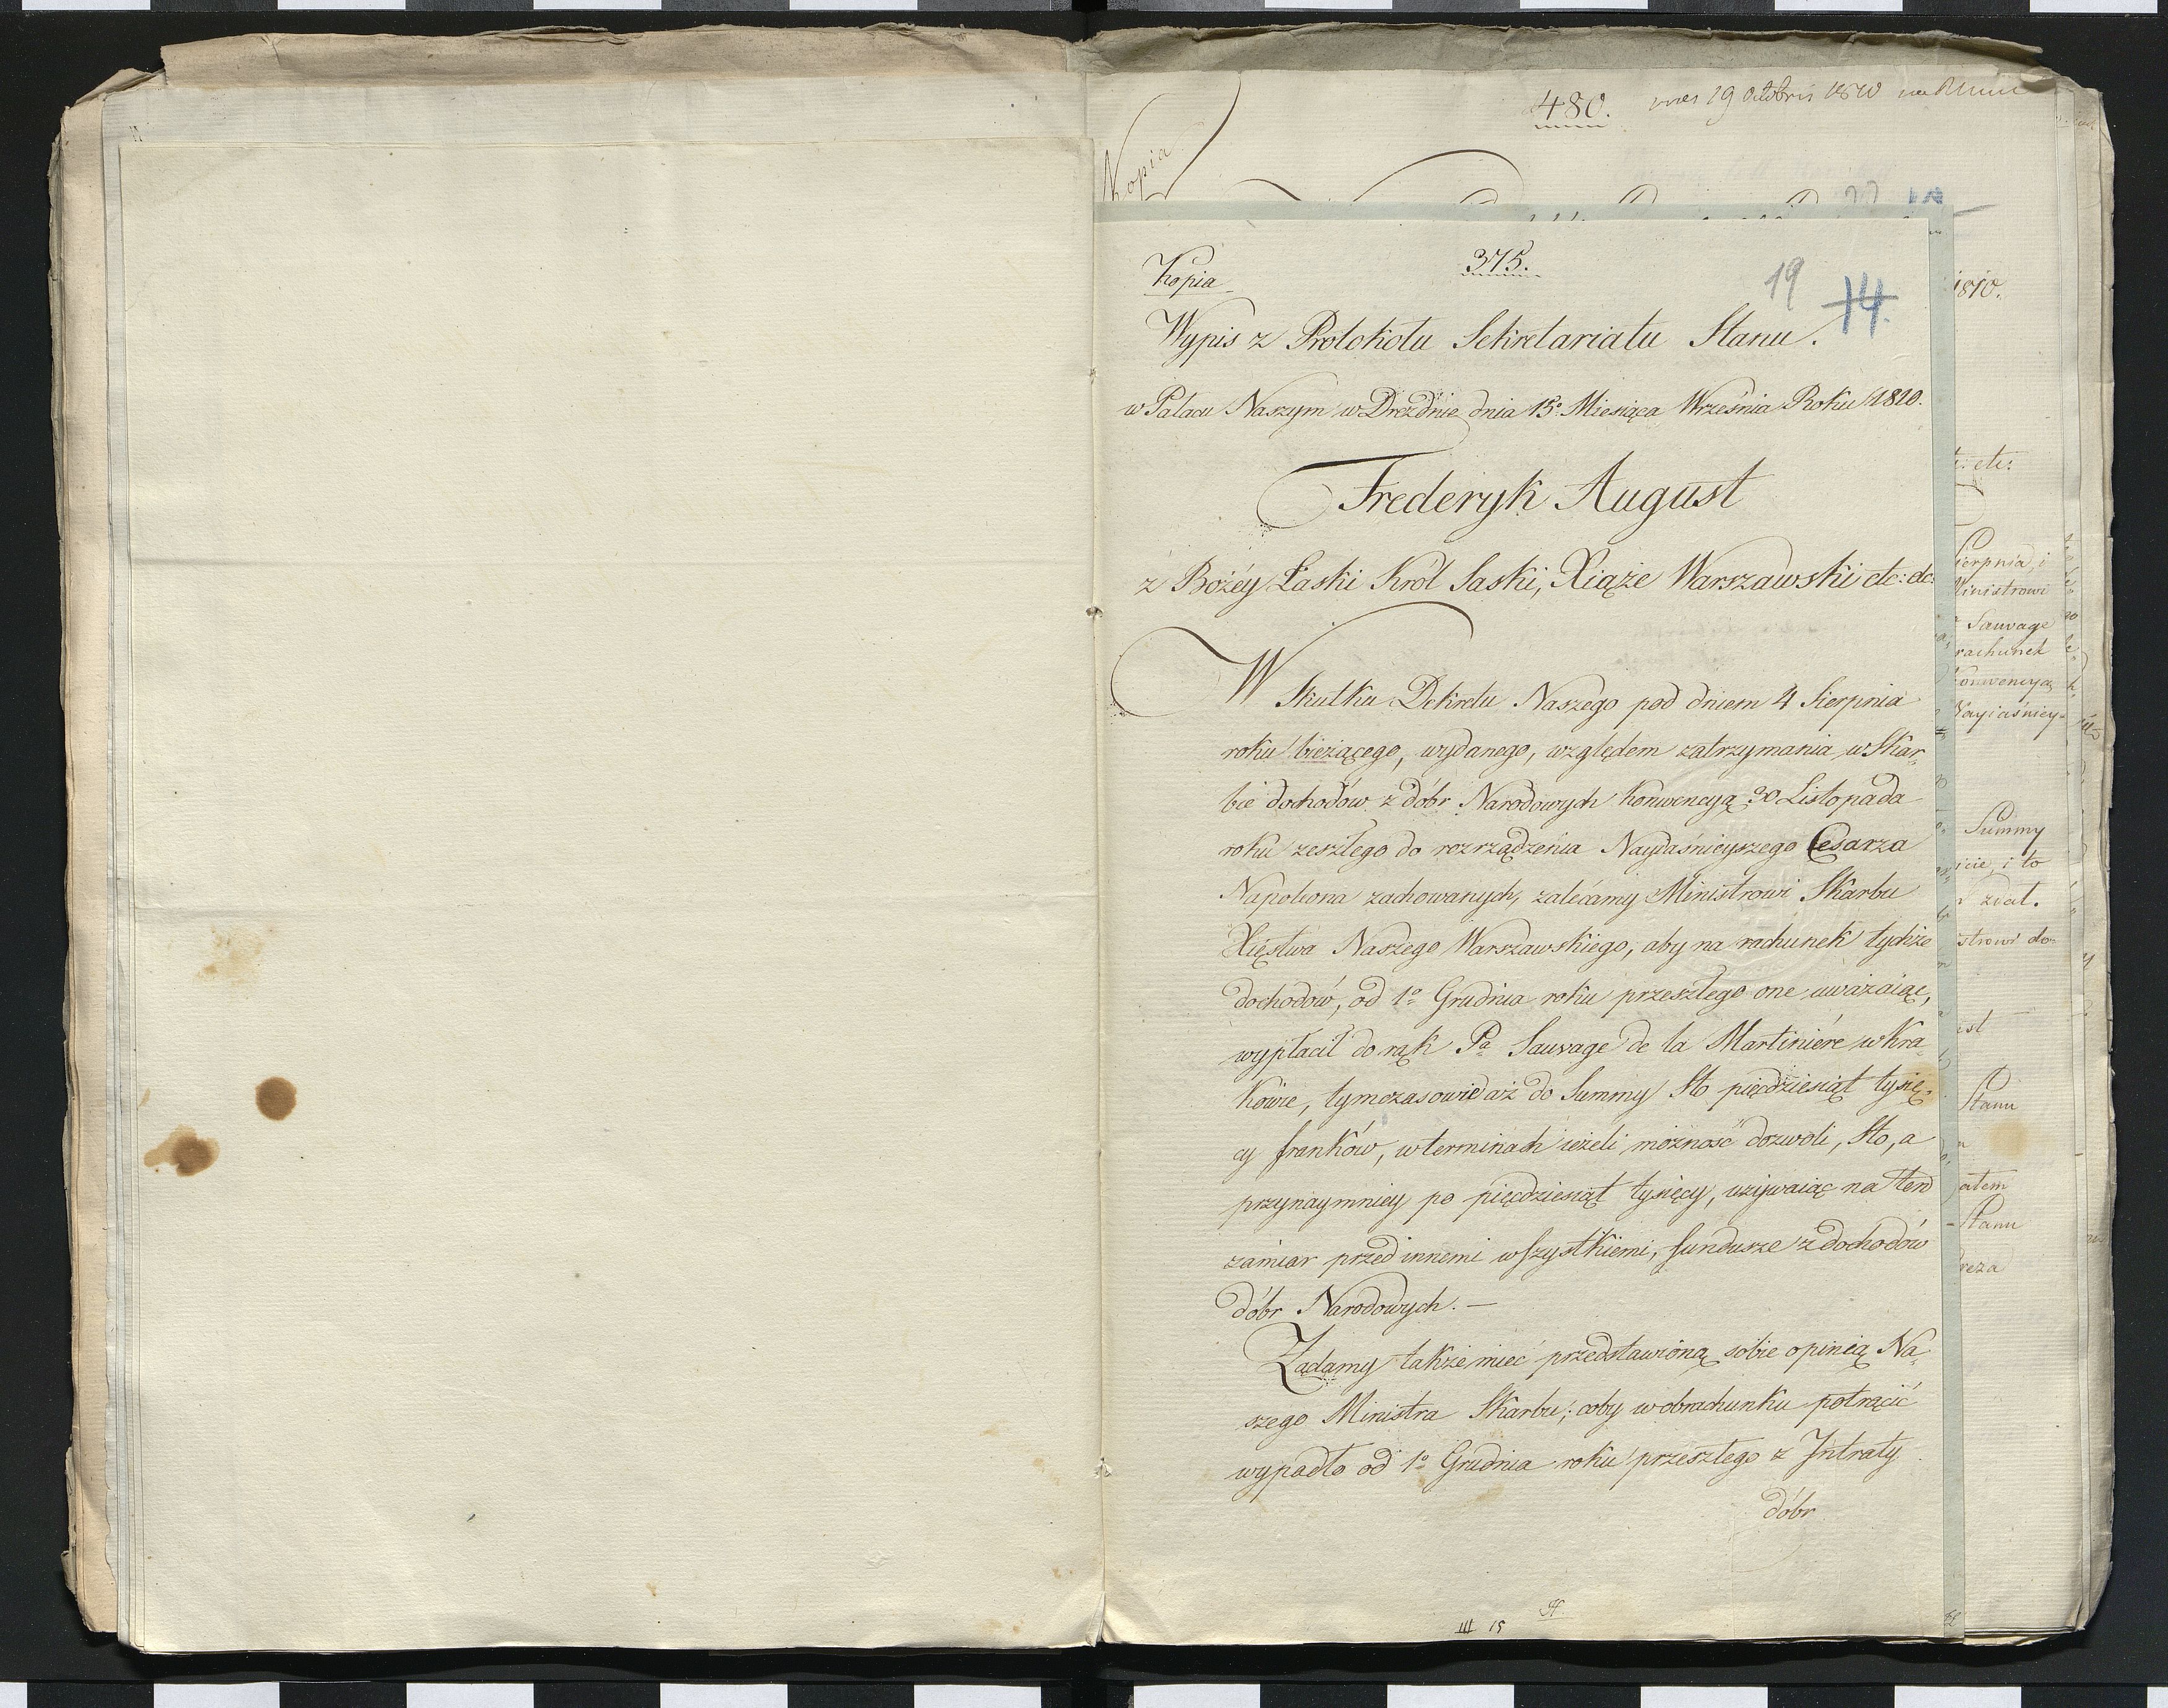 480. 19 Octobris 1810
Kopia
Kopia
375.
19
14.
Wypis z Protokołu Sekretariatu Stanu.
w Pałacu Naszym w Dreźdnie dnia 15º Miesiąca Września Roku 1810.
Frederyk August
z Bożéy Łaski Król Saski, Xiąże Warszawski etc: etc:
W Skutku Dekretu Naszego pod dniem 4 Sierpnia
roku bieżącego, wydanego, względem zatrzymania w Skar„
bie dochodów z dóbr Narodowych konwencyą 30 Listopada
roku zeszłego do rozrządzenia Nayiaśnieyszego Cesarza
Napoleona zachowanych, zalécamy Ministrowi Skarbu
Xięstwa Naszego Warszawskiego, aby na rachunek tychże
dochodów, od 1º Grudnia roku przeszłego one uważaiąc,
wypłacił do rąk Pª Sauvage de la Martiniére w Kra„
kówie, tymczasowie aż do Summy Sto pięćdziesiąt tysię„
cy franków, w terminach ieżeli możność dozwoli, Sto, a
przynaymniey po pięćdziesiąt tysięcy, używaiąc na ten
zamiar przed innemi wszystkiemi, fundusze z dochodów
dóbr Narodowych. —
Żądamy także mieć przedstawioną sobie opinią Na„
szego Ministra Skarbu; coby w obrachunku potrącić
wypadło od 1º Grudnia roku przeszłego z Intraty
dóbr
III 15
1810.
etc:
Sierpnia, i
Ministrowi
Sauvage
rachunek
Konwencyą
Nayiaśniey„
Summy
i to
zdat.
Stanu
Stanu